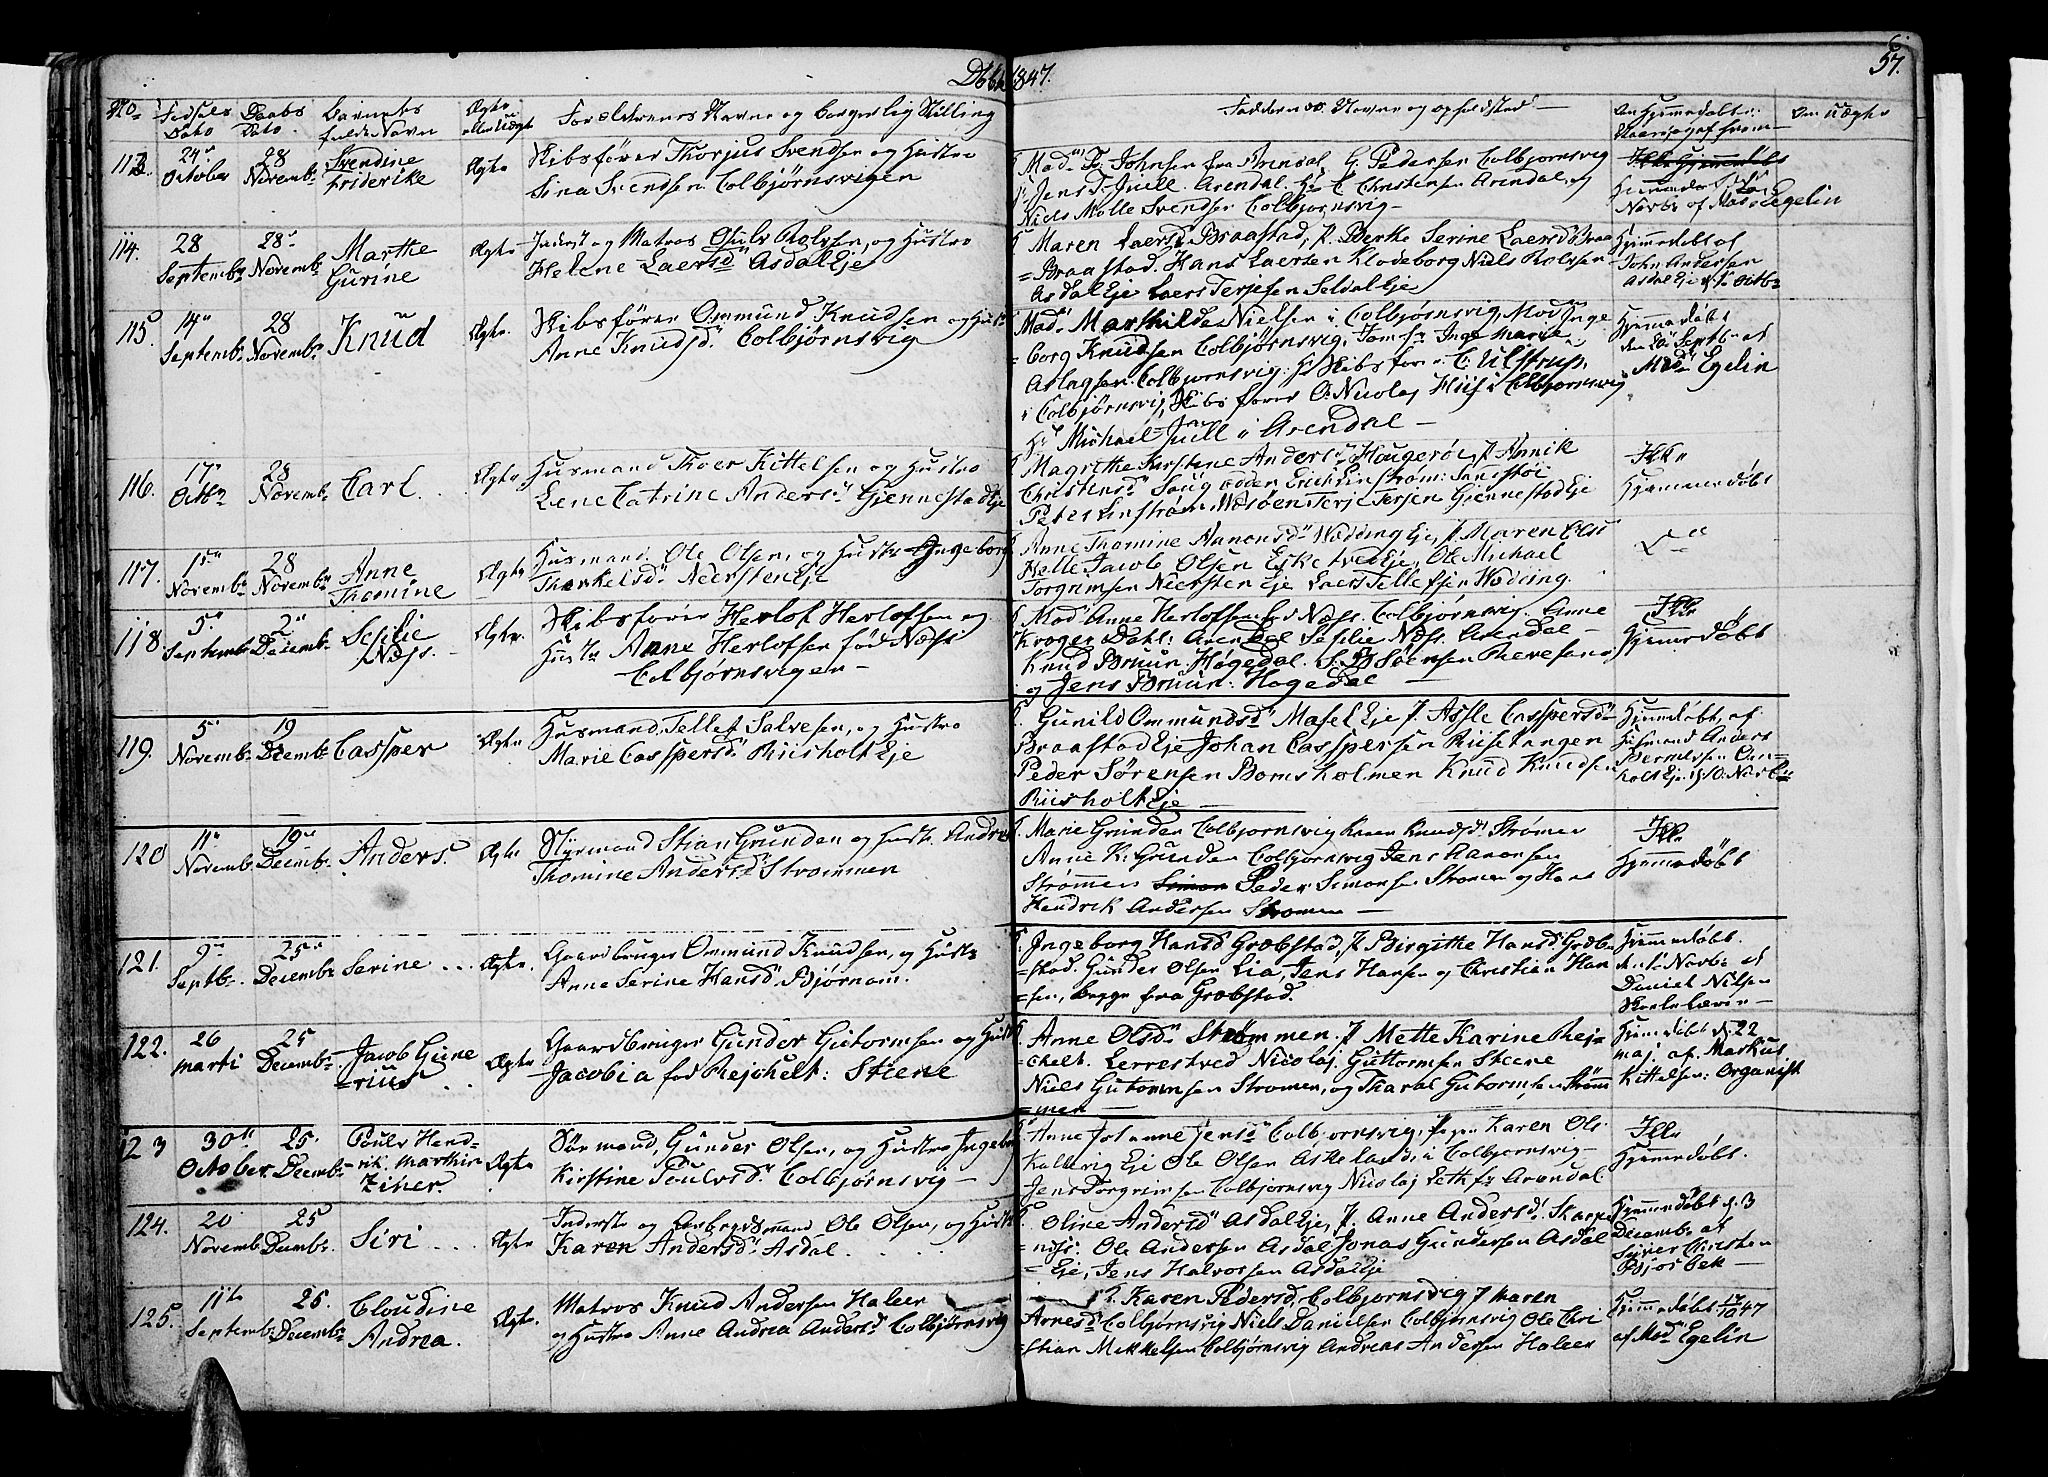 Döbte 1847.
57.
No Fødsels Dato Daabs Dato. Barnets fulde Navn Ægte eller Uægte Forældrenes Navne og borgerlig Stilling Faddernes Navne og opholdsted Om Hjemmedøbt Om Uægte
113. 24de October 28 Novembr Svendine Friderike Ægte Skibsfører Thorjus Svendsen og Hustro
Sina Svendsen Colbjørnsvigen
Mad. F. Johnsen fra Arendal, G. Pedersen Colbjornsvig
Jens T. Juell. Arendal. Hr C Christensen Arendal, og
Niels Molle Svendsen Colbjornsvig
Ikke Hjemmedøbt
Hjemmedøbt
Novbr af Mad Egelin
114. 28 September 28 Novembr Marthe Gurine Ægte Inderst og Matros Osulv Rolvsen, og Hustro
Helene Laersd. Asdal Eje
Maren Laersd. Braastad, P. Berthe Serine Laersd.
Braastad. Hans Laersen Klodeborg Niels Rolvsen
Asdal Eje Laers Terjesen Seldal Eje
Hjemmedøbt af
John Andersen
Asdal Eje d. 1 Octbr
115. 14 Septembr 28 Novembr Knud Ægte. Skibsfører Ommund Knudsen og Hust
Anne Knudsd. Colbjørnsvig
Mad. Marthilde Nielsen i Colbjørnsvig, Mad Inge
borg Knudsen Colbjørnsvig, Jomfr Inge Marie
Aslagsen Colbjornsvig. Hr Skibsfører C. Ulstrup.
i Colbjørnsvig, Skibsfører O. Nicolaj Huf i Colbjornsvig
Hr Michael Juell i Arendal
Hjemmedøbt
den 20 Septbr af
Mad Egelin
116. 17 Octbr 28 Novembr Carl Ægte Husmand Thoer Kittelsen og Hustro
Lene Catrine Andersd. Gjennestad Eje
Magrethe Kirstine Andersd. Haugerøe, P. Annik
Christensd. Songe Erich Linstrøm: Sandstøe
Peter Linstrøm Næsøen Terje Terjen Gjennestad Eje
Ikke
Hjemmedøbt
117. 15 Novembr 28 Novembr Anne Thomine Ægte Husmand. Ole Olsen, og Hustr Ingeborg
Therkelsd. Neersten Eje
Anne Thomine Nanonsd. Wedding Eje, P. Maren Else
Helle Jacob Olsen Eskedved Eje, Ole Michael
Torgrimsen Neersten Eje Laers Tellefsen Wedding.
118. 5 Septembr 5 Decembr Sesilie Næss. Ægte. Skibsfører Herlof Herlofsen og
Hustr Anne Herlofsen fød Næss
Colbjørnsvigen
Mad. Anne Herlofsen fød Næss. Colbjørnsvig. Anne
Krøger Dahl. Arendal Sesilie Næss. Arendal
Knud Bruun. Høgedal. Søensen Revesand
og Jens Bruun. Høgedal
Ikke
Hjemmedøbt
119. 5 Novembr 19 Decembr Cassper Ægte Husmand, Tellef Salvesen, og Hustro
Marie Casspersd. Riisholt Eje
Gunild Ommundsd. Masel Eje P. Assle Casspersd.
Braastad Eje Johan Casspersen Riisetangen
Peder Sørensen Bomsholmen Knud Knudsen
Riisholt Eje
Hjemmedøbt, af
Husmand Anders
Berntsen
holt Eje d. 10. Novbr
120 11 Novembr 19 Decembr Anders. Ægte Styrmand Stian Grunden og Hustr Andrea
Thomine Andersd. Strømmen
Marie Grunden Colbjornsvig Karen Knudsd. Strømen
Anne K. Grunden Colbjornsvig Jens Nanonsen
Strømmen Simon Peder Simonsen Strømen og Hans
Hendrik Andersen Strømen
Ikke
Hjemmedøbt
121. 9 Septbr. 25 Decembr Serine Ægte. Gaardbruger Ommund Knudsen, og Hustr
Anne Serine Hansd. Bjørnom.
Ingeborg Hansd Græbstad, P. Birgithe Hansd Græb
stad. Gunder Olsen Lia, Jens Hansen og Christian Han
sen, begge fra Græbstad.
Hjemmedøbt.
den 1 Novbr af
Daniel Nilsen
Skolelærer
122. 26 marti 25 Decembr Jacob Gune rius Ægte Gaardbruger Gunder Gutormsen og Hustr
Jacobia fød Rejchelt: Stiene
Anne Olsd. Strømmen. P. Mette Karine Rej
chelt. Lerrestved Nicolaj Guttormsen Steene
Niels Gutormsen Strømen, og Tharal Gutormsen Strøm
men
Hjemmedøbt d. 22
maj. af. Markus
Kittelsen: Organist
123 30 October 25 Decembr Poulv Hend rik. Marthin Ziner. Ægte Sømand, Gunder Olsen, og Hustro Ingeborg
Kirstine Poulvsd. Colbjørnsvig
Anne Johanne Jensd. Colbjornsvig, Karen Ols
Kallevig Eje Ole Olsen Askeland i Colbjornsvig
Jens Torgrimsen Colbjornsvig Nicolaj Leth fr Arendal.
Ikke
Hjemmedøbt.
124. 20 Novemb 25 Decembr. Siri Ægte Inderste og Arbejdsmand Ole Olsen, og Hustr
Karen Andersd. Asdal
Oline Andersd. Asdal Eje, P. Anne Andersd. Skarpe
næs. Ole Andersen Asdal Jonas Gundersen Asdal
Eje, Jens Halvorsen Asdal Eje
Hjemmedøbt d. 3
Decembr af
Sejver Christen
Bjorbek
125. 11te Septembr 25. Decembr Cloudine Andrea. Ægte. Matros Knud Andersen Haleer
og Hustro Anne Andrea Andersd Colbjørnsvig
Karen Pedersd, Colbjornsvig P Maren
Arnesd. Colbjørnsvig Niels Danielsen Colbjornsvig Ole Chri
stian Mikkelsen Colbjørnsvig Andreas Andersen Haleer
Hjemmedøbt 17/10 47
af Mad Egelin